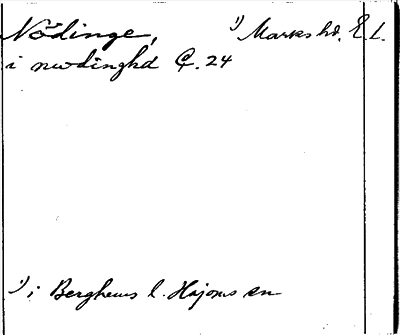 Nödinge, ¹) Marks hd. Ä.l.
i nwdinghd C. 24
¹) i Berghems l. Hajoms sn